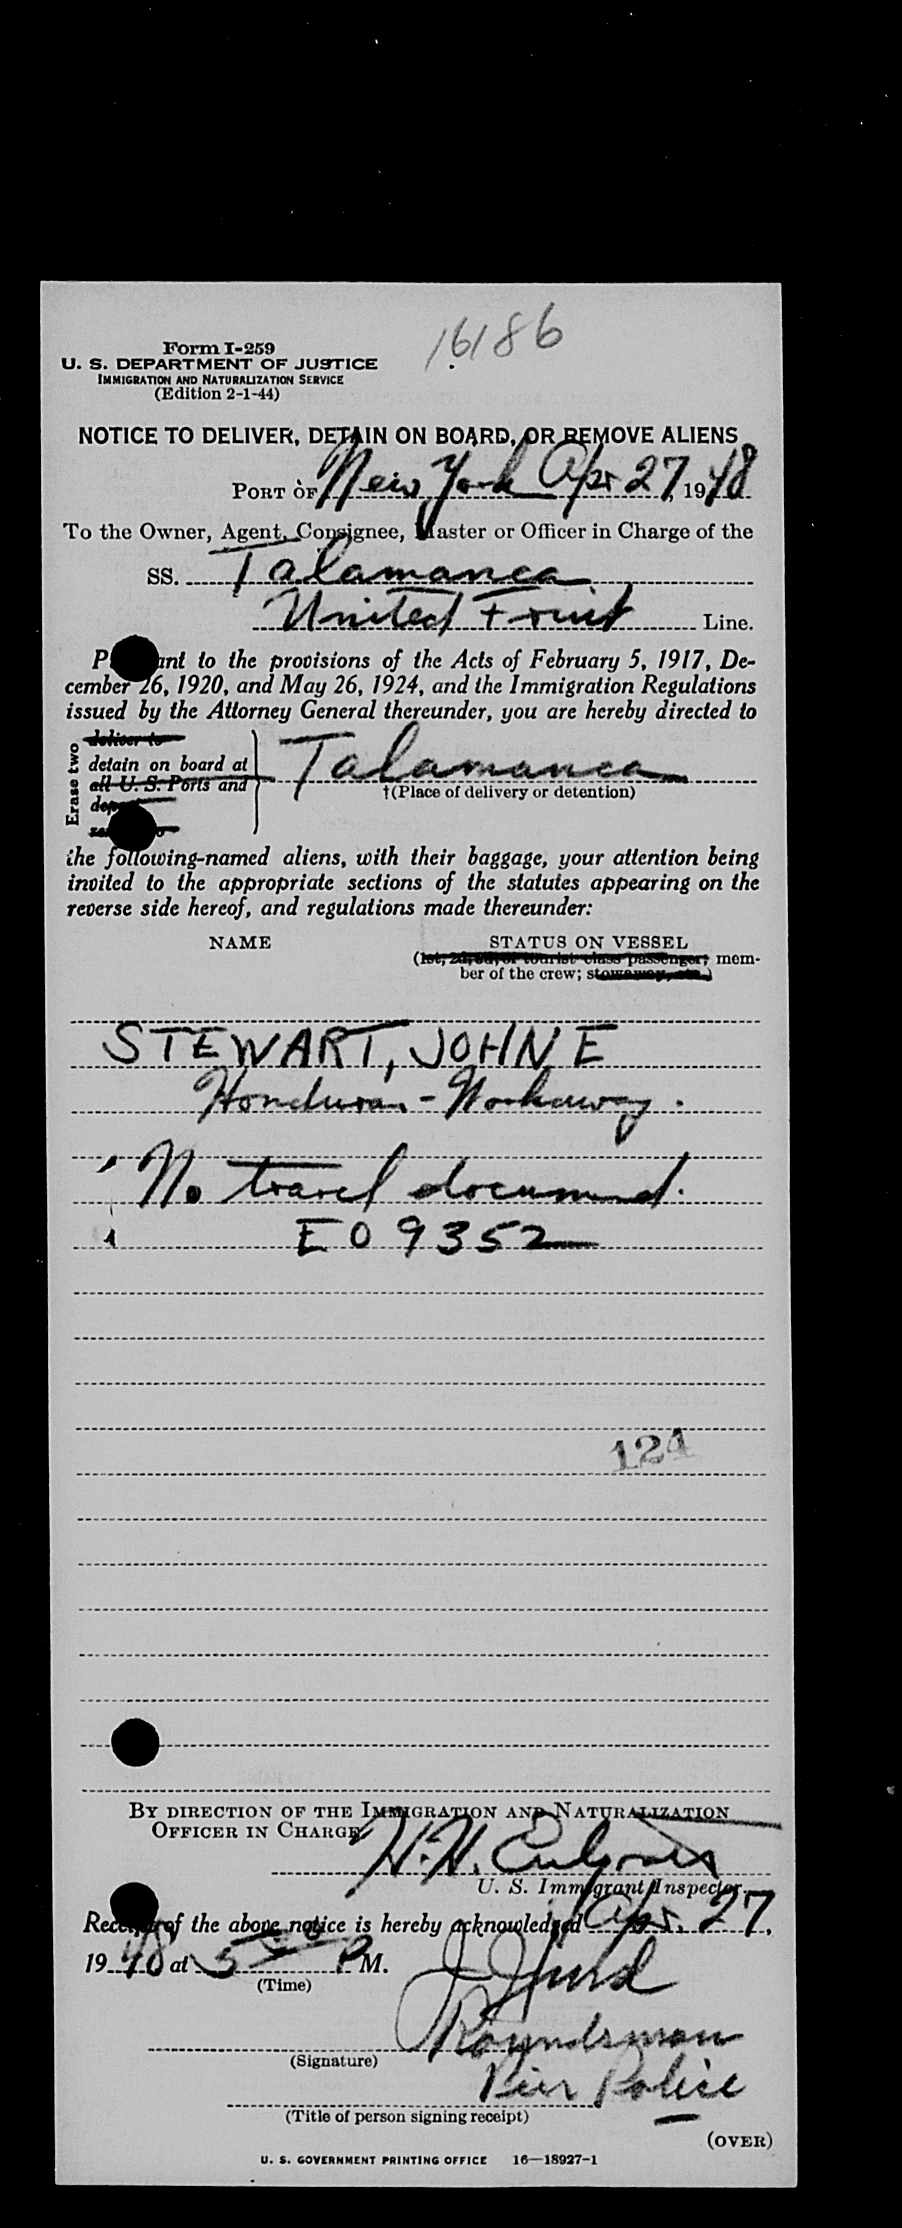 16186
Form I-259
U. S. DEPARTMENT OF JUSTICE
IMMIGRATION AND NATURALIZATION SERVICE
(Edition 2-1-44)
NOTICE TO DELIVER, DETAIN ON BOARD, OR REMOVE ALIENS
PORT OF New York Apr 27, 1948
To the Owner, Agent, Consignee, Master or Officer in Charge of the
SS. Talamanca
United Fruit Line.
P ant to the provisions of the Acts of February 5, 1917, De-
cember 26, 1920, and May 26, 1924, and the Immigration Regulations
issued by the Attorney General thereunder, you are hereby directed to
Erase two
deliver to
detain on board at
all U. S. Ports and
Talamanca
†(Place of delivery or detention)
the following-named aliens, with their baggage, your attention being
invited to the appropriate sections of the statutes appearing on the
reverse side hereof, and regulations made thereunder:
NAME STATUS ON VESSEL
(1st, 2d, 3d, or tourist class passenger; mem-
ber of the crew; stowaway, etc.)
STEWART, JOHN E
Honduran - Workaway.
No travel document.
EO 9352
124
BY DIRECTION OF THE IMMIGRATION AND NATURALIZATION
OFFICER IN CHARGE
H. H.
U. S. Immigrant Inspector.
Receipt of the above notice is hereby acknowledged Apr. 27,
1948 at 5 P M.
(Time)
Roundsman
(Signature)
Pier Police
(Title of person signing receipt)
(OVER)
U. S. GOVERNMENT PRINTING OFFICE 16—18927-1